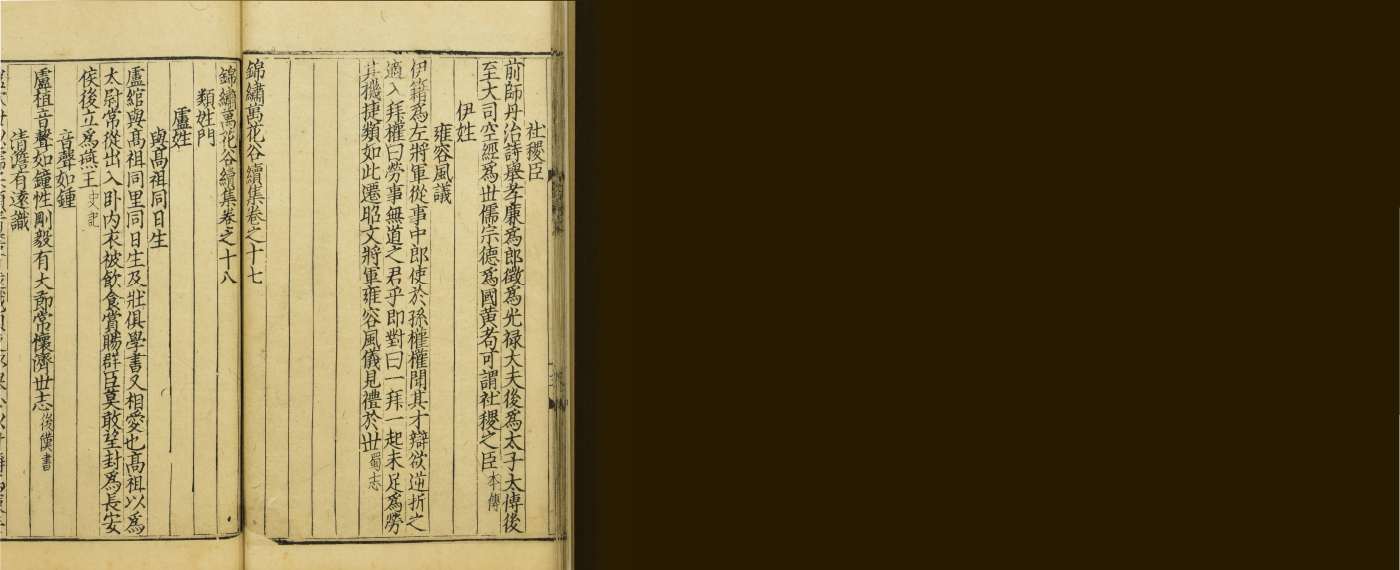 社稷臣
前師丹治詩舉孝廉爲郎徵爲光禄大夫後爲太子太傅後
至大司空經爲世儒宗德爲國黄耇可謂社稷之臣本傳
伊姓
雍容風議
伊籍爲左將軍從事中郎使於孫權權聞其才辯欲逆折之
適入拜權曰勞事無道之君乎即對曰一拜一起未足爲勞
其機捷類如此遷昭文將軍雍容風儀見禮於世蜀志
錦繡萬花谷續集卷之十七
錦繡萬花谷續集卷之十八
類姓門
盧姓
與髙祖同里同日生
盧綰與髙祖同里同日生及壯俱學書又相愛也髙祖以爲
太尉常從出入卧内衣被飲食賞賜群臣莫敢望封爲長安
侯後立爲燕王史記
音聲如鍾
盧植音聲如鐘性剛毅有大節常懷濟世志後漢書
清澹有遠識